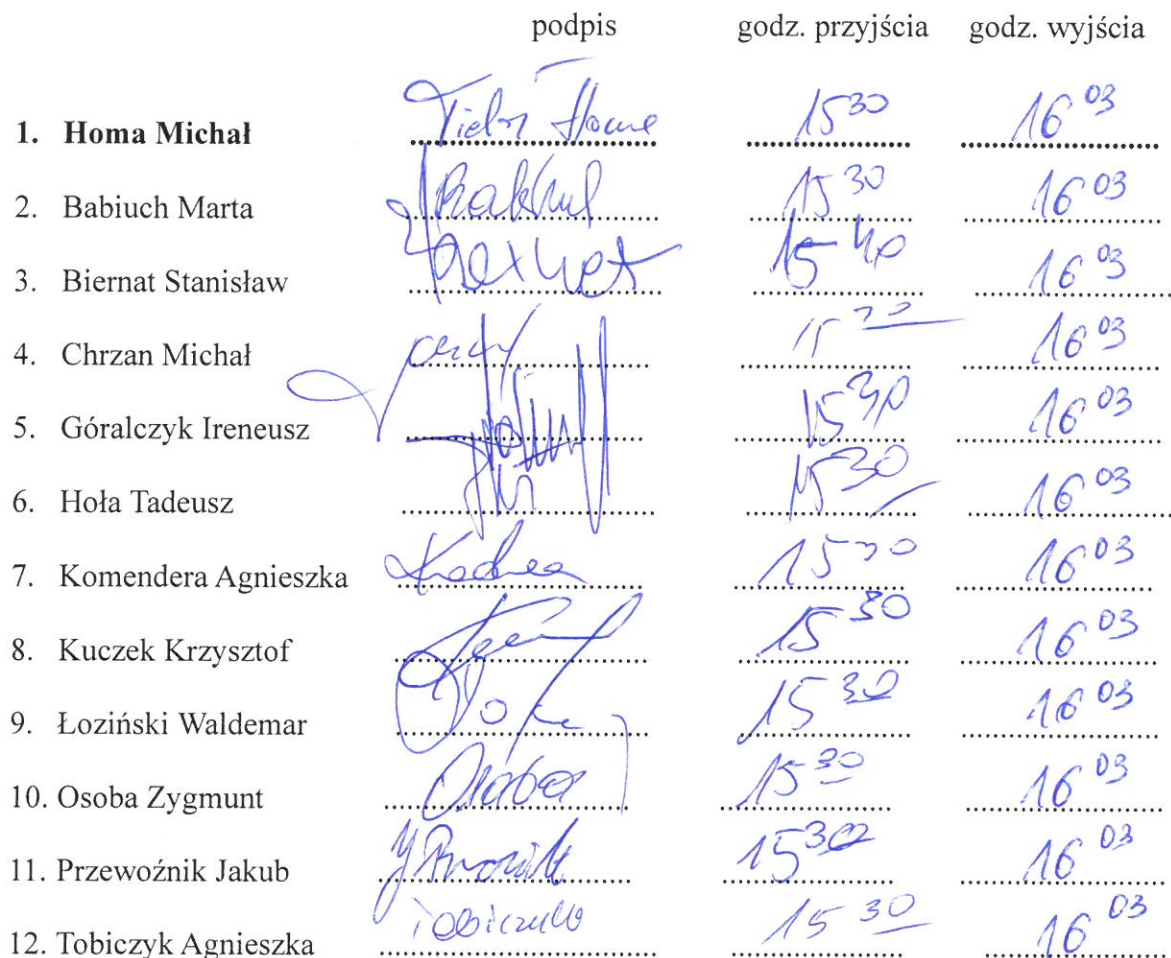 podpis godz. przyjścia godz. wyjścia
1. Homa Michał 15³⁰ 16⁰³
2. Babiuch Marta 15³⁰ 16⁰³
3. Biernat Stanisław 15⁴⁰ 16⁰³
4. Chrzan Michał 15³⁰ 16⁰³
5. Góralczyk Ireneusz 15³⁰ 16⁰³
6. Hoła Tadeusz 15³⁰ 16⁰³
7. Komendera Agnieszka 15³⁰ 16⁰³
8. Kuczek Krzysztof 15³⁰ 16⁰³
9. Łoziński Waldemar 15³⁰ 16⁰³
10. Osoba Zygmunt Osoba 15³⁰ 16⁰³
11. Przewoźnik Jakub 15³⁰ 16⁰³
12. Tobiczyk Agnieszka 15³⁰ 16⁰³